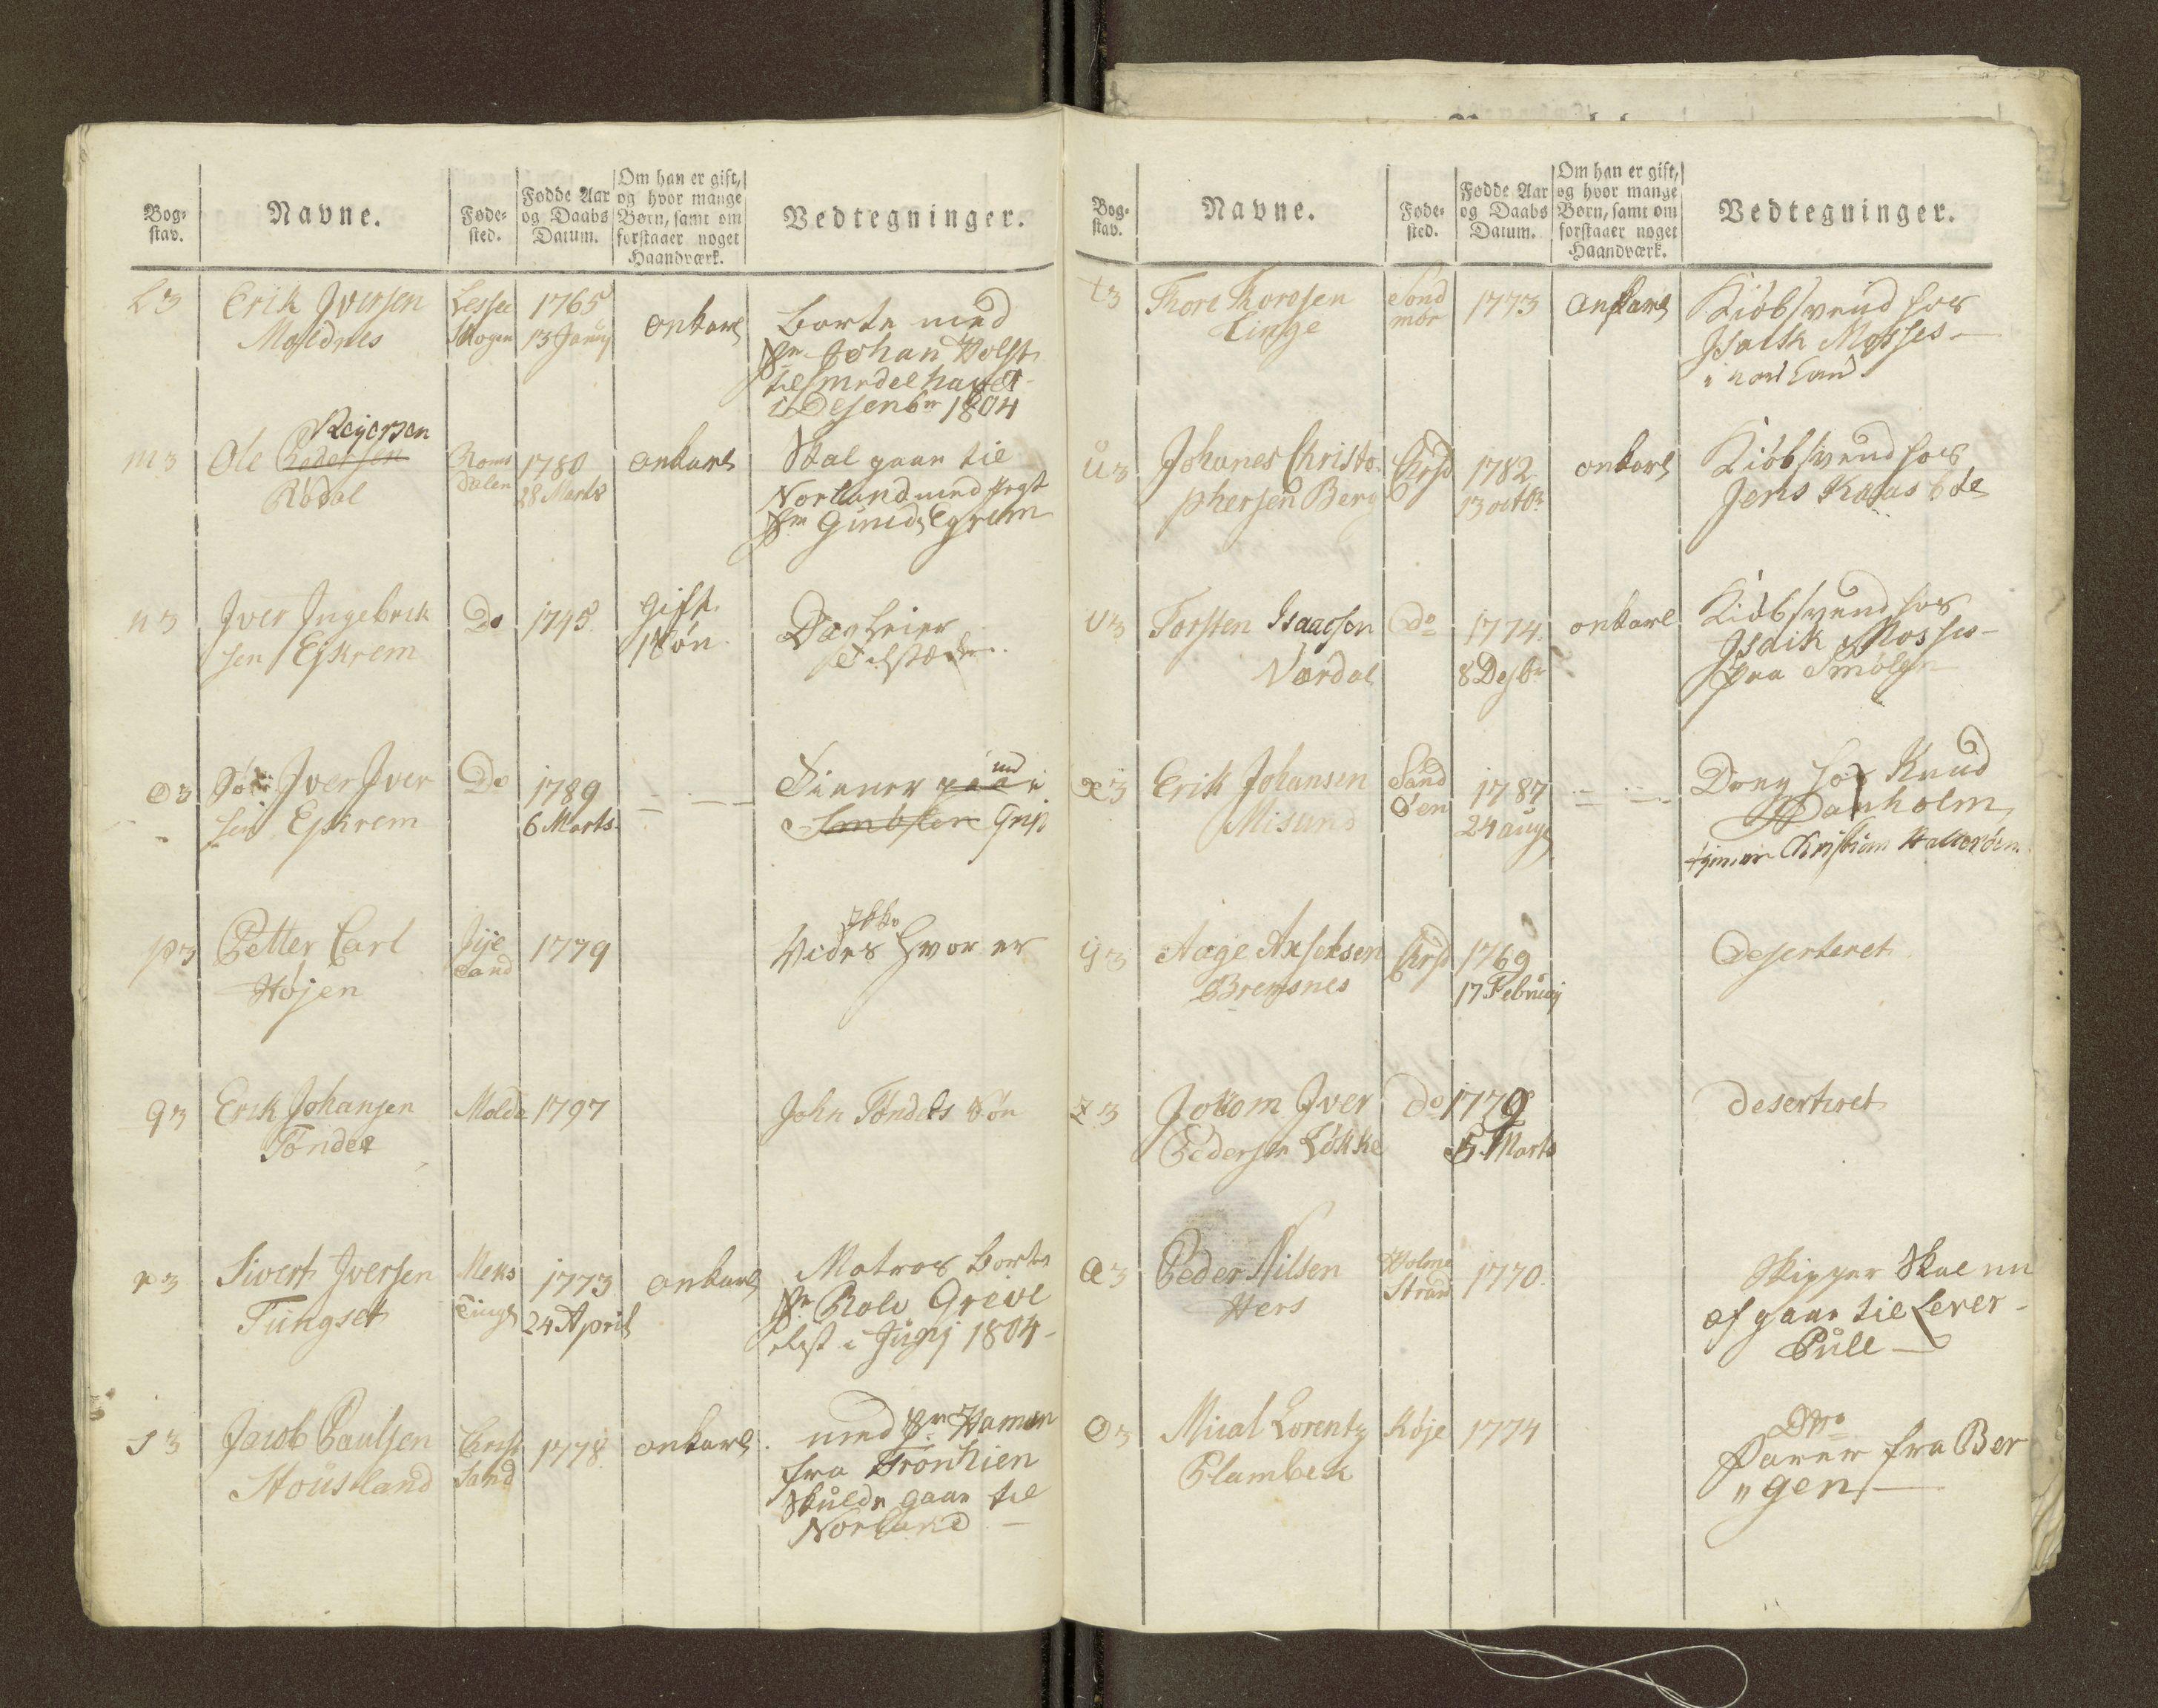 Bog-
stav.
Navne.
Føde-
sted.
Fødde Aar
og Daabs
Datum.
Om han er gift,
og hvor mange
Børn, samt om
forstaaer noget
Haandværk.
Vedtegninger.
L3
Erik Jversen
Moldnes
Lessøe
Skogen
1765
13 Januj
onkarl
borte med
Johan Holst
til Middelhavet
i Desenbr 1804
m3
Reyersen
Ole Pedersen
Rødal
Roms
dalen
1780
28 Marts
onkarl
Skal gaae til
Norland med Jegt
n3
Jver Jngebrik
sen Eskrem
Do
1745
Gift
1 Søn
Dagleier
o3
Jver Jver
sen Eskrem
Do
1789
6 Marts
Tiener paa
i
Grip
p3
Petter Carl
Højen
sand
1779
Ikke
Vides hvor er
q3
Erik Johansen
Tønder
Molde
1797
John Tønders Søn
r3
Sivert Jversen
Tungset
1773
24 April
onkarl
Matros borte
Rolv Greve
i Junj 1804
s3
Jacob Paulsen
Stousland
Christ
Sand
1778
onkarl
med
fra Tronhien
Skulde gaae til
Norland
Bog-
stav.
Navne.
Føde-
sted.
Fødde Aar
og Daabs
Datum.
Om han er gift,
og hvor mange
Børn, samt om
forstaaer noget
Haandværk.
Vedtegninger.
t3
Thore Thoresen
Linge
Sønd
mør
1773
onkarl
Kiøbsvend hos
Jsach Mosses
i Norland
u3
Johanes Christo-
phersen Berg
Chrsd
1782
13 octbr
onkarl
Kiøbsvend hos
Jens Kaasbøl
v3
Torsten Isaacsen
Værdal
Do
1774
8 Desbr
onkarl
Kiøbsvend hos
Jsaik Mosses
paa Smølen
x3
Erik Johansen
Misund
Sand
Øen
1787
24 augs
Dreng hos Knud
Danholm
Christian
y3
Aage Axselsen
Bremsnes
Chrsd
1769
17 Februarj
Deserteret
z3
Jokom Jver
Pedersen Løkke
Do
1779
5 Marts
deserteret
æ3
Peder Nilsen
Hers
Holme
Strand
1770
Skipper Skal nu
af gaae til Lever-
Pull
ø3
Mical Lorentz
Plambek
Køje
1774
Dito
Farer fra Ber
"gen